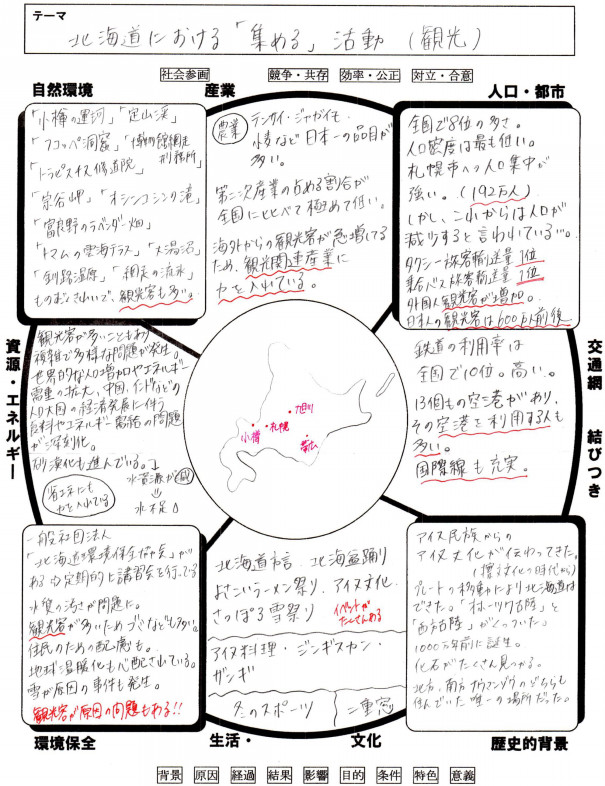 テーマ
北海道における「集める」活動（観光）
社会参画 競争・共存 効率・公正 対立・合意
自然環境
「小樽の運河」「定山渓」
「フゴッペ洞窟」「博物館網走刑務所」
「トラピスチヌ修道院」
「宗谷岬」「オシンコシンの滝」
「富良野のラベンダー畑」
「トマムの雲海テラス」「大湯沼」
「釧路湿原」「網走の流氷」
ものすごきれいで、観光客も多い。
産業
農業
テンサイ・ジャガイモ・
小麦など日本一の品目が
多い。
第二次産業の占める割合が
全国に比べて極めて低い。
海外からの観光客が急増してる
ため、観光関連産業に
力を入れている。
人口・都市
全国で8位の多さ。
人口密度は最も低い。
札幌市への人口集中が
強い。(192万人)
しかし、これからは人口が
減少すると言われている…。
タクシー旅客輸送量1位
乗合バス旅客輸送量1位
外国人観光客が増加。
日本人の観光客は600万人前後
資源・エネルギー
観光客が多いこともあり
複雑で多様な問題が発生。
世界的な人口増加やエネルギー
需要の拡大、中国、インドなどの
人口大国の経済発展に伴う
食料やエネルギー需給の問題
が深刻化。
砂漠化も進んでいる。
水資源が減
水不足
省エネにも
力を入れてる
旭川
札幌
小樽
帯広
交通網 結びつき
鉄道の利用率は
全国で10位。高い。
13個もの空港があり、
その空港を利用する人も
多い。
国際線も充実。
一般社団法人
「北海道環境保全協会」が
ある→定期的に講習会を行ってる
水質の汚さが問題に。
観光客が多いためゴミなども多い。
住民のための配慮も。
地球温暖化も心配されている。
雪が原因の事件も発生。
観光客が原因の問題もある!!
環境保全
北海道方言、北海盆踊り
よさこいラーメン祭り、アイヌ文化、
さっぽろ雪祭り
イベントが
たくさんある
アイヌ料理・ジンギスカン・
ザンギ
冬のスポーツ
二重窓
生活・文化
アイヌ民族からの
アイヌ文化が伝わってきた。
(擦文文化の時代から)
プレートの移動により北海道は
できた。「オホーツク古陸」と
「西古陸」がくっついた。
1000万年前に誕生。
化石がたくさん見つかる。
北方、南方ナウマンゾウのどちらも
住んでいた唯一の場所だった。
歴史的背景
背景 原因 経過 結果 影響 目的 条件 特色 意義